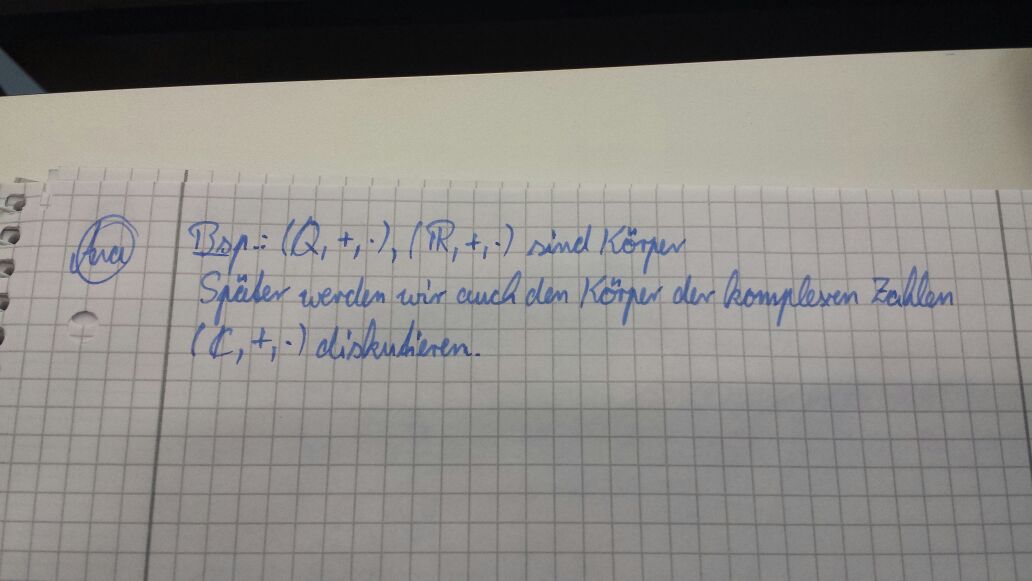 Ana
Bsp.: (ℚ, +, ·), (ℝ, +, ·) sind Körper
Später werden wir auch den Körper der komplexen Zahlen
(ℂ, +, ·) diskutieren.